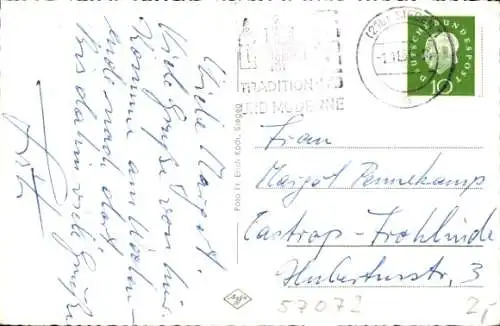 Liebe Margot!
Viele Grüße von hier.
Komme am Wochen-
ende nach dort
Bis dahin viele Grüße
Foto Fr. Erich Koch, Siegen
TRADITION
UND MODERNE
DEUTSCHE BUNDESPOST
10
Frau
Margot Pennekamp
Castrop-Frohlinde
Hubertusstr. 3
57072
2,-